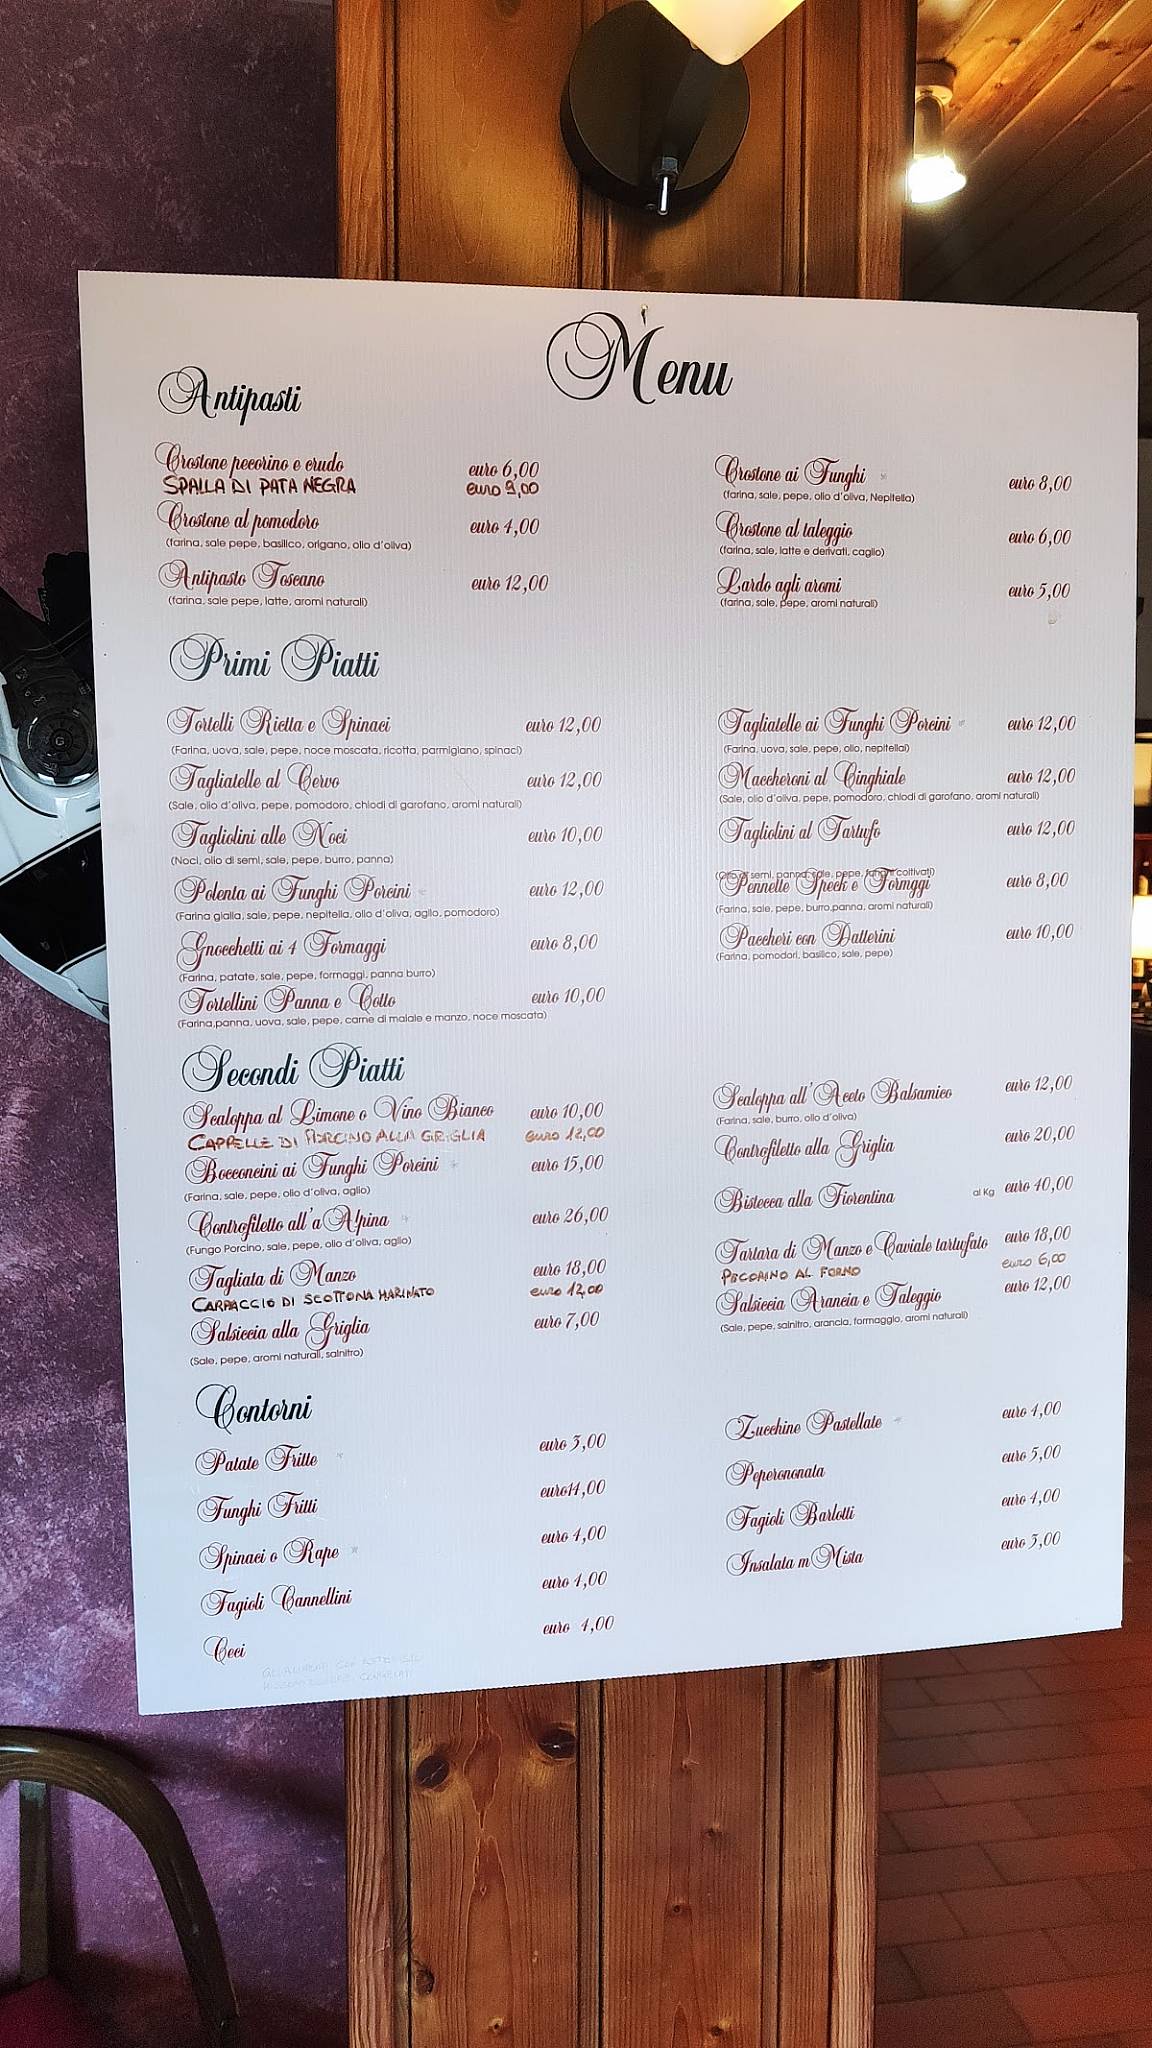 Menu
Antipasti
Crostone pecorino e crudo euro 6,00
SPALLA DI PATA NEGRA euro 9,00
Crostone al pomodoro euro 4,00
(farina, sale pepe, basilico, origano, olio d'oliva)
Antipasto Toscano euro 12,00
(farina, sale pepe, latte, aromi naturali)
Crostone ai Funghi * euro 8,00
(farina, sale, pepe, olio d'oliva, Nepitella)
Crostone al taleggio euro 6,00
(farina, sale, latte e derivati, caglio)
Lardo agli aromi euro 5,00
(farina, sale, pepe, aromi naturali)
Primi Piatti
Tortelli Rictta e Spinaci euro 12,00
(Farina, uova, sale, pepe, noce moscata, ricotta, parmigiano, spinaci)
Tagliatelle al Cervo euro 12,00
(Sale, olio d'oliva, pepe, pomodoro, chiodi di garofano, aromi naturali)
Tagliolini alle Noci euro 10,00
(Noci, olio di semi, sale, pepe, burro, panna)
Polenta ai Funghi Porcini * euro 12,00
(Farina gialla, sale, pepe, nepitella, olio d'oliva, aglio, pomodoro)
Gnocchetti ai 4 Formaggi euro 8,00
(Farina, patate, sale, pepe, formaggi, panna burro)
Tortellini Panna e Cotto euro 10,00
(Farina,panna, uova, sale, pepe, carne di maiale e manzo, noce moscata)
Tagliatelle ai Funghi Porcini * euro 12,00
(Farina, uova, sale, pepe, olio, nepitellai)
Maccheroni al Cinghiale euro 12,00
(Sale, olio d'oliva, pepe, pomodoro, chiodi di garofano, aromi naturali)
Tagliolini al Tartufo euro 12,00
(Olio di semi, panna, sale, pepe, funghi coltivati)
Pennette Speck e Formggi euro 8,00
(Farina, sale, pepe, burro,panna, aromi naturali)
Paccheri con Datterini euro 10,00
(Farina, pomodori, basilico, sale, pepe)
Secondi Piatti
Scaloppa al Limone o Vino Bianco euro 10,00
CAPPELLE DI PORCINO ALLA GRIGLIA euro 12,00
Bocconcini ai Funghi Porcini * euro 15,00
(Farina, sale, pepe, olio d'oliva, aglio)
Controfiletto all'a Alpina * euro 26,00
(Fungo Porcino, sale, pepe, olio d'oliva, aglio)
Tagliata di Manzo euro 18,00
CARPACCIO DI SCOTTONA MARINATO euro 12,00
Salsiccia alla Griglia euro 7,00
(Sale, pepe, aromi naturali, salnitro)
Scaloppa all'Aceto Balsamico euro 12,00
(Farina, sale, burro, olio d'oliva)
Controfiletto alla Griglia euro 20,00
Bistecca alla Fiorentina al Kg euro 40,00
Tartara di Manzo e Caviale tartufato euro 18,00
PECORINO AL FORNO euro 6,00
Salsiccia Arancia e Taleggio euro 12,00
(Sale, pepe, salnitro, arancia, formaggio, aromi naturali)
Contorni
Patate Fritte * euro 3,00
Funghi Fritti euro14,00
Spinaci o Rape * euro 4,00
Fagioli Cannellini euro 4,00
Ceci euro 4,00
Zucchine Pastellate * euro 4,00
Peperononata euro 5,00
Fagioli Barlotti euro 4,00
Insalata m Mista euro 3,00